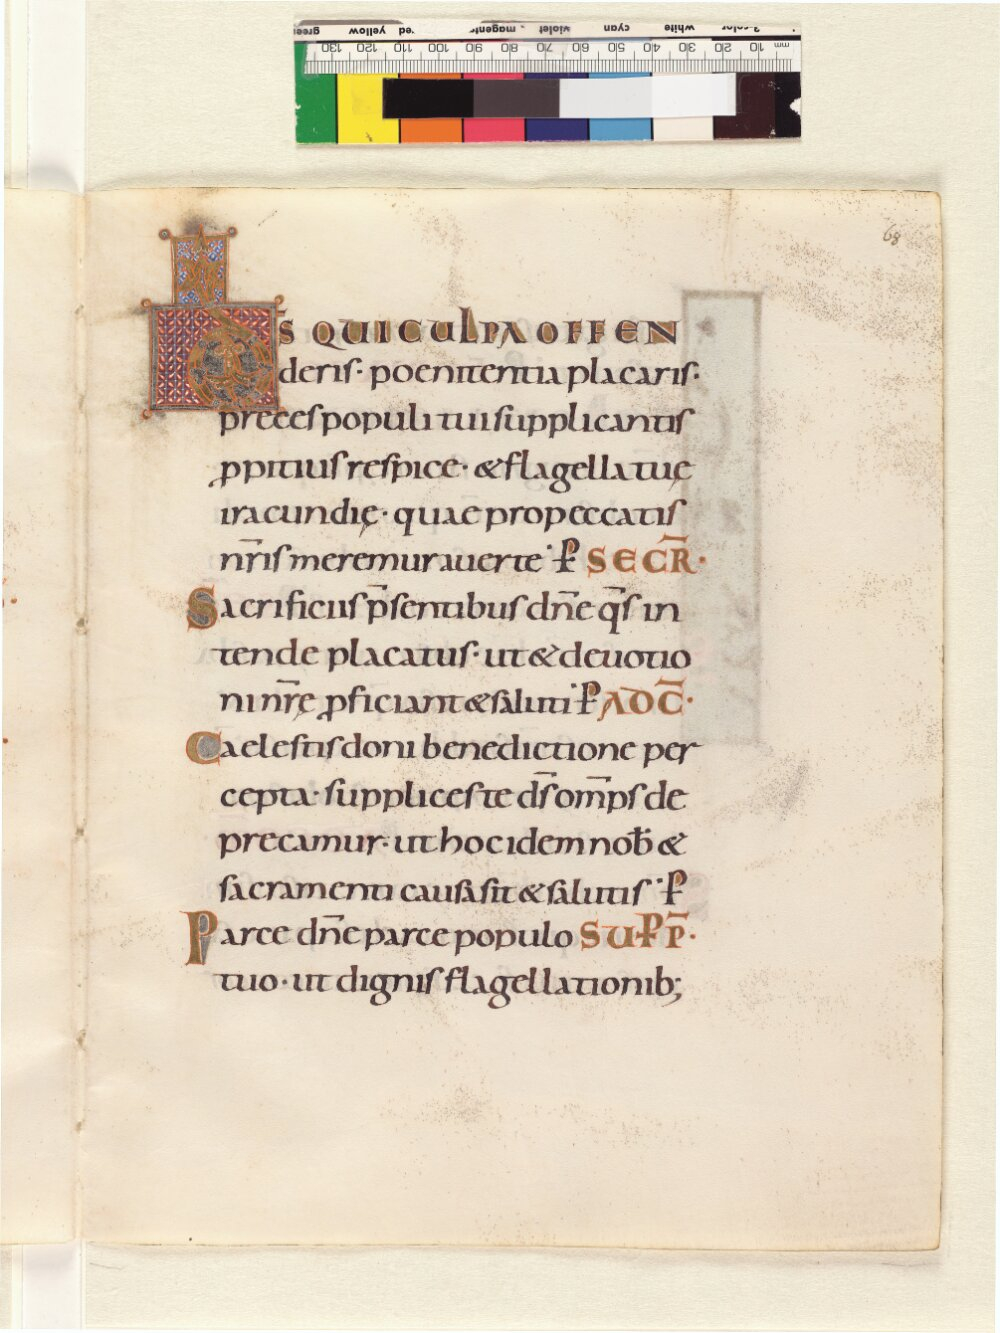 green yellow red magenta violet cyan white 3-color
130 120 110 100 90 80 70 60 50 40 30 20 10 mm
68
D̅S QUI CULPA OFFEN
deris· poenitentia placaris·
preces populi tui supplicantis
ꝓpitius respice· & flagella tuę
iracundię· quae pro peccatis
nr̅is meremur auerte·̓ P̵ SECR̅·
Sacrificiis p̅sentibus dn̅e q̅s in
tende placatus· ut & deuotio
ni nr̅ę ꝓficiant & saluti·̓ P̵ AD C̅·
Caelestis doni benedictione per
cepta· supplices te d̅s om̅ps de
precamur· ut hoc idem nob̅ &
sacramenti causa sit & salutis·̓ P̵
Parce dn̅e parce populo SUP̵P̅·
tuo· ut dignis flagellationib;